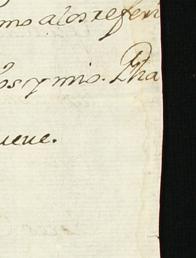 mo a los referi
os y mio. Pha
ueue.